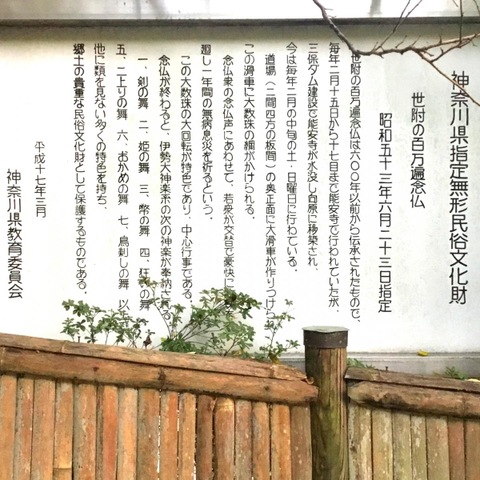 神奈川県指定無形民俗文化財
世附の百万遍念仏
昭和五十三年六月二十三日指定
世附の百万遍念仏は六〇〇年以前から伝承されたもので、
毎年二月十五日から十七日まで能安寺で行われていたが、
三保ダム建設で能安寺が水没し向原に移築され、
今は毎年二月の中旬の土・日曜日に行われている。
道場(二間四方の板間)の奥正面に大滑車が作りつけら
この滑車に大数珠の綱がかけられる。
念仏衆の念仏声にあわせて、若衆が交替で豪快に
廻し一年間の無病息災を祈るという。
この大数珠の大回転が特色であり、中心行事である。
念仏が終わると、伊勢大神楽系の次の神楽が奉納される
一、剣の舞 二、姫の舞 三、幣の舞 四、狂 の舞
五、二上りの舞 六、おかめの舞 七、鳥刺しの舞 以
他に類を見ない多くの特色を持ち、
郷土の貴重な民俗文化財として保護するものである。
平成十七年三月
神奈川県教育委員会